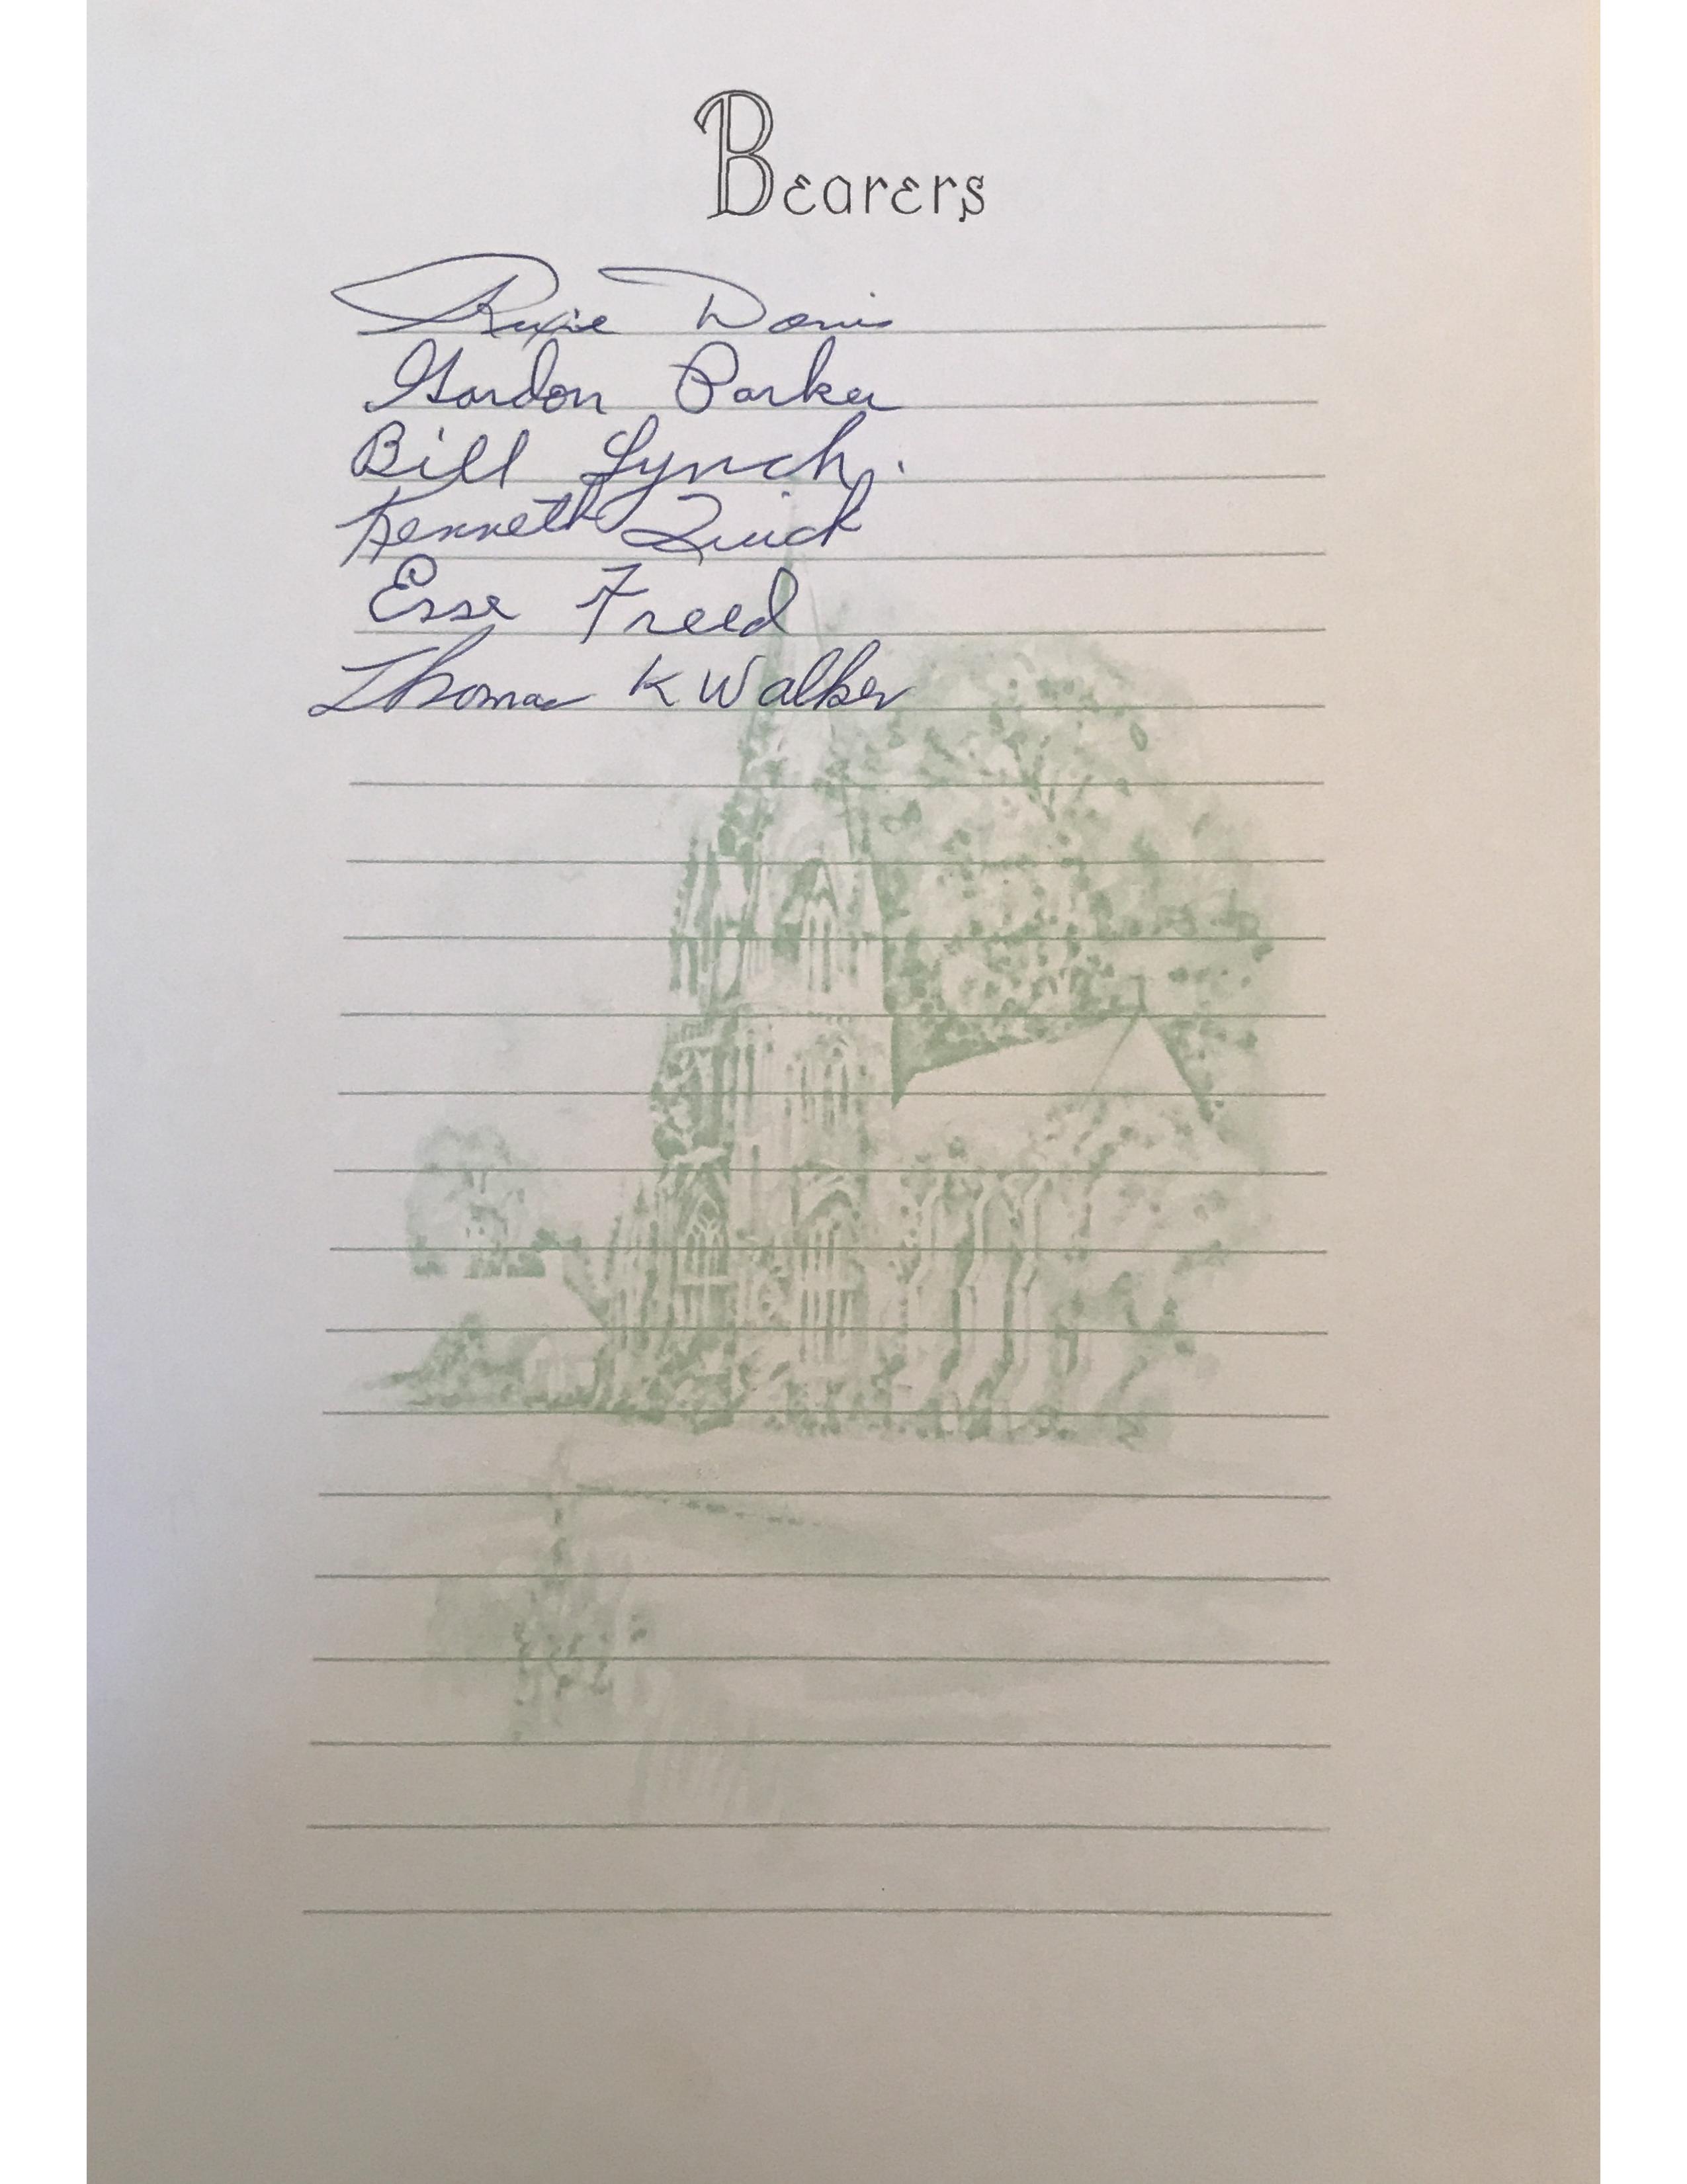 Bearers
Davis
Gordon Parker
Bill Lynch.
Kenneth Quick
Esse Freed
Thomas K Walker